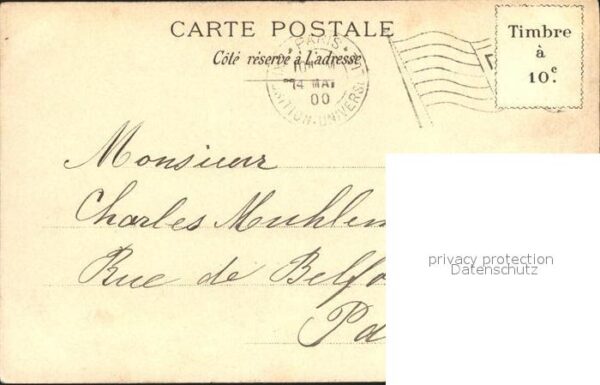 CARTE POSTALE
Côté réservé à L'adresse
PARIS
14 MAI
00
EXPOSITION-UNIVERSE
Timbre
à
10c.
Monsieur
Charles Muhlem
Rue de Belfo
Pa
privacy protection
Datenschutz